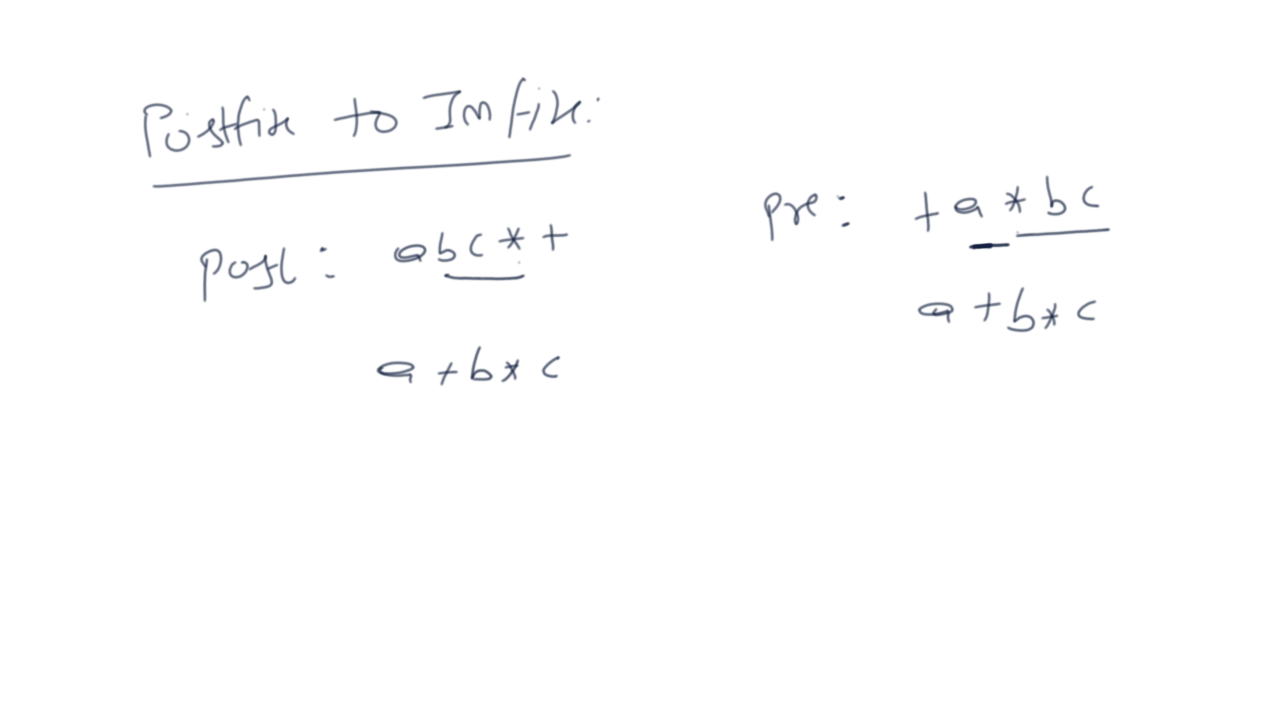 Postfix to Infix:
Post: abc*+
a+b*c
Pre: +a*bc
a+b*c